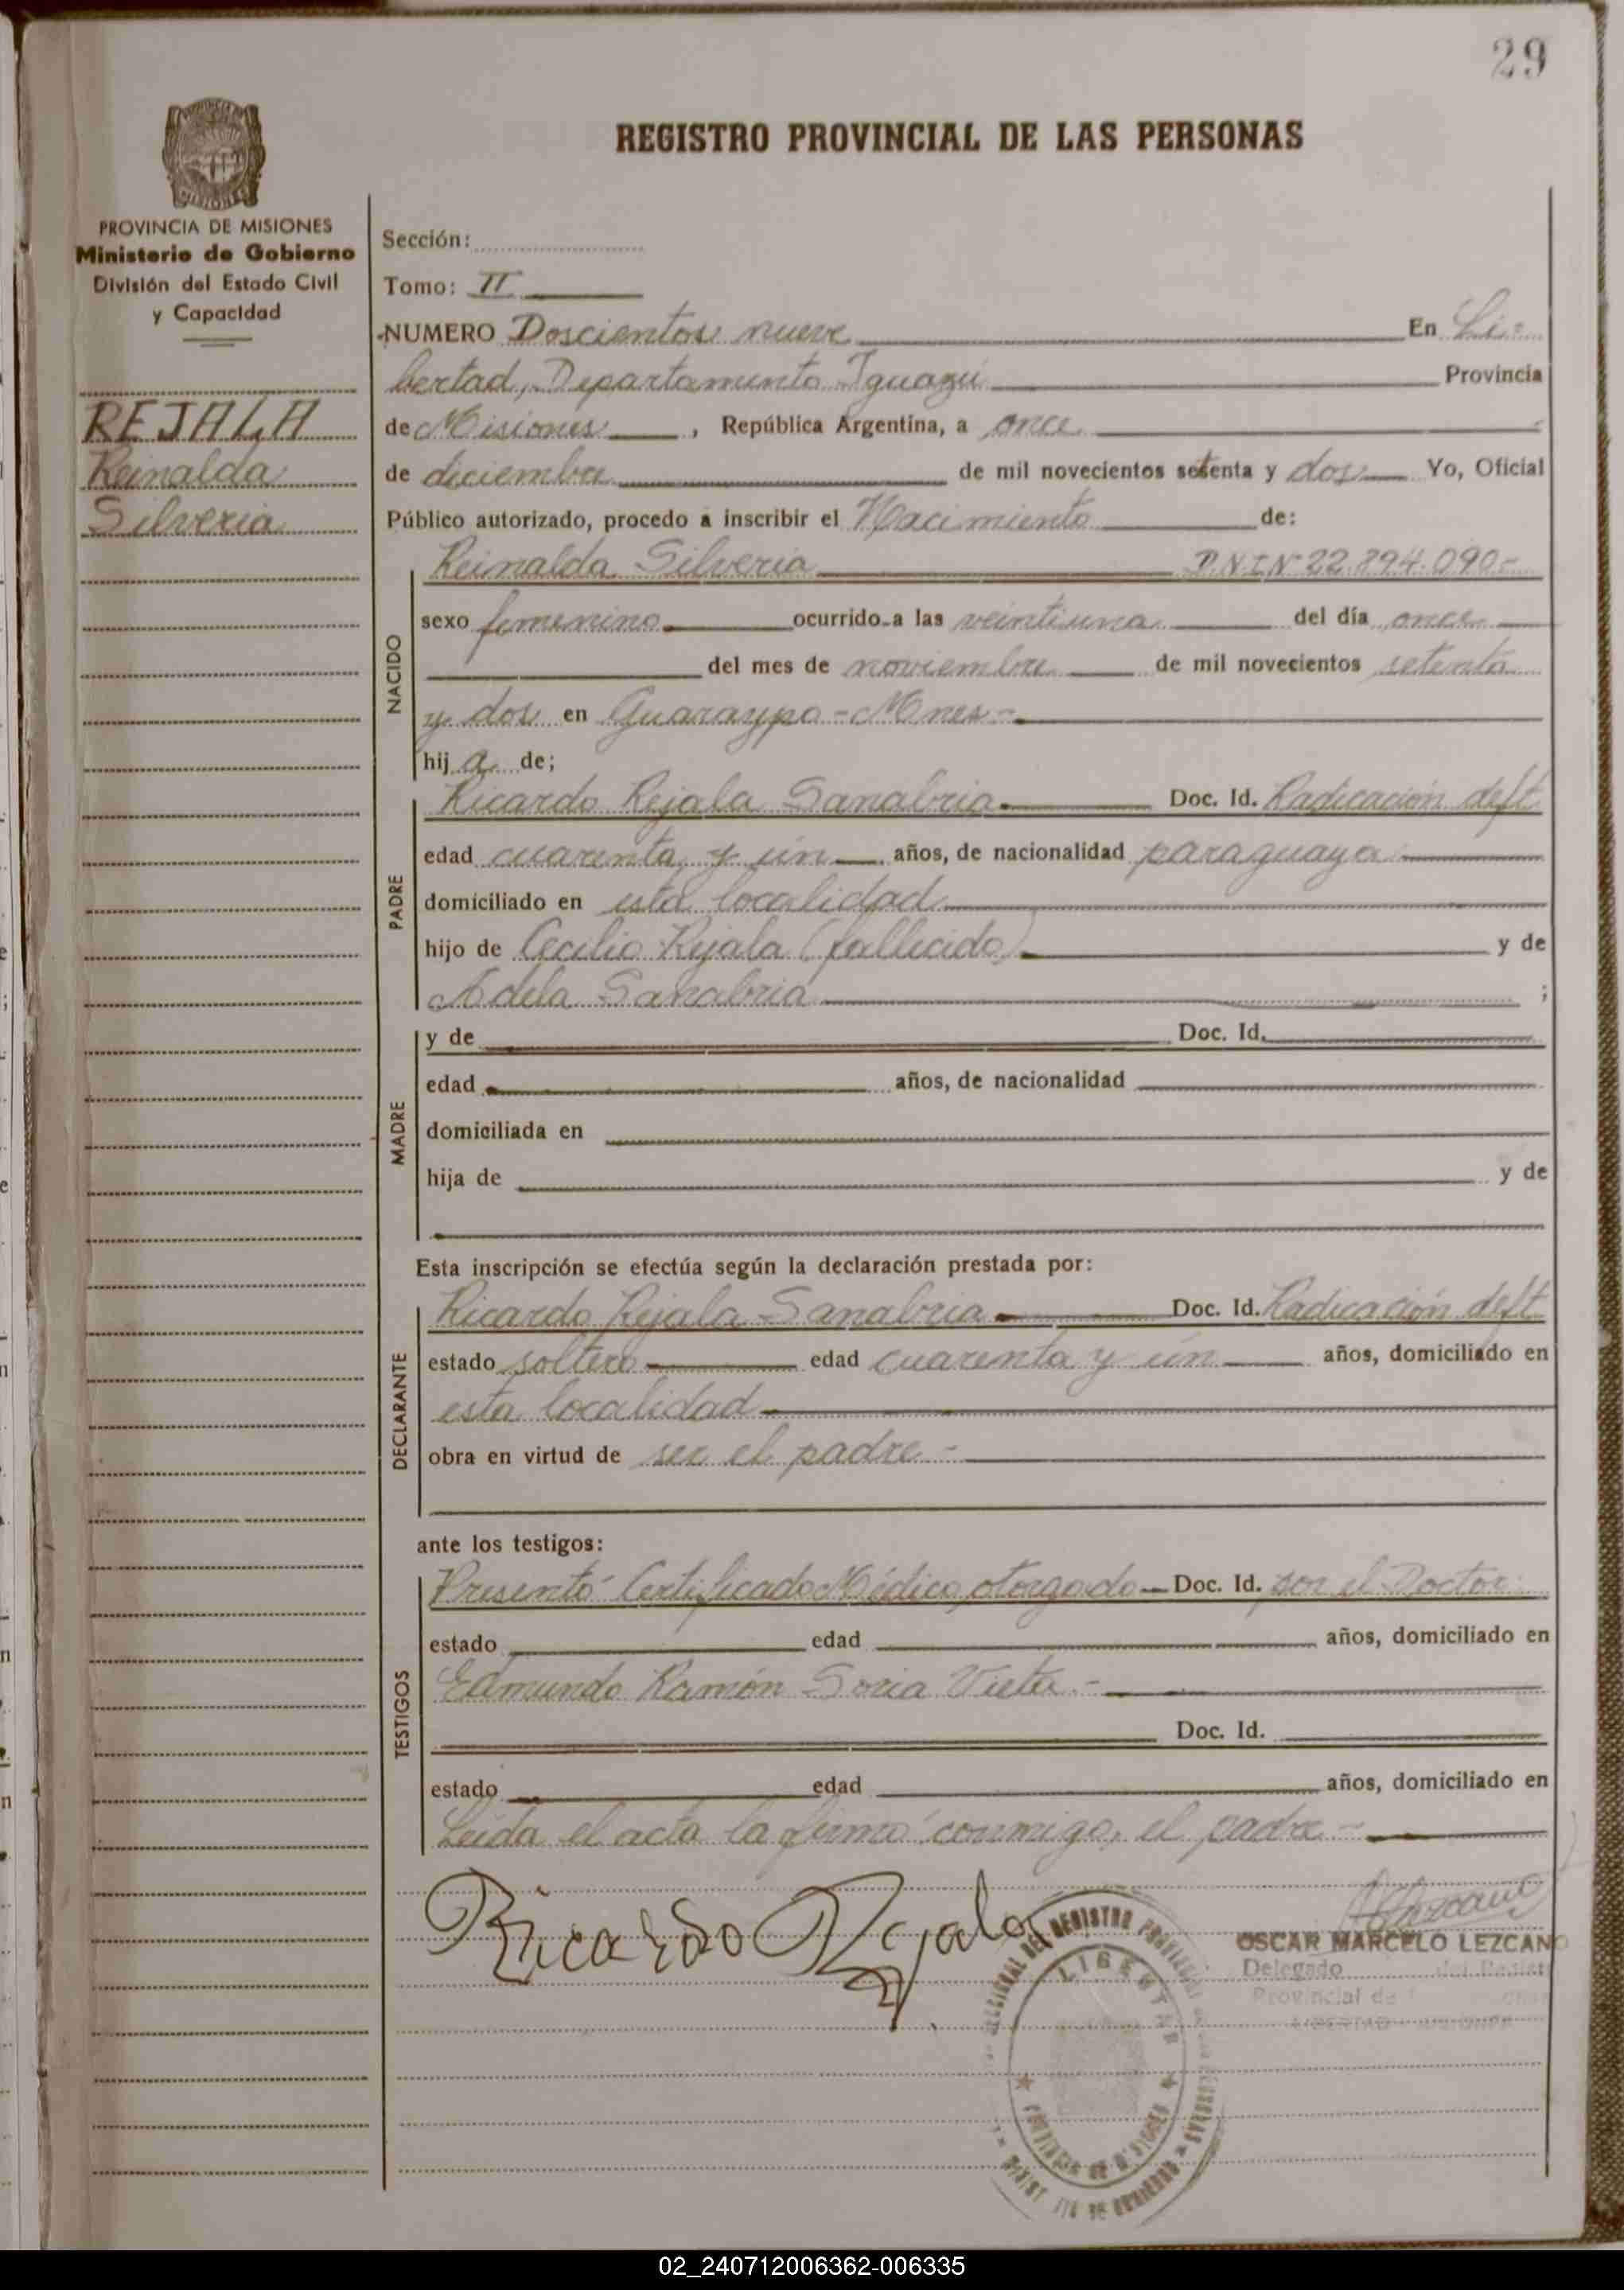 29
REGISTRO PROVINCIAL DE LAS PERSONAS
PROVINCIA DE MISIONES
Ministerio de Gobierno
División del Estado Civil
y Capacidad
REJALA
Reinalda
Silveria
Sección:
Tomo: II
NUMERO Doscientos nueve En Li-
bertad, Departamento Iguazú Provincia
de Misiones, República Argentina, a once
de diciembre de mil novecientos setenta y dos Yo, Oficial
Público autorizado, procedo a inscribir el Nacimiento de:
Reinalda Silveria D.N.I. Nº 22.894.090-
NACIDO
sexo femenino ocurrido a las veintiuna del día once
del mes de noviembre de mil novecientos setenta
y dos en Guaraypo - Mnes -
hija de;
PADRE
Ricardo Rejala Sanabria Doc. Id. Radicación deft
edad cuarenta y un años, de nacionalidad paraguaya
domiciliado en esta localidad
hijo de Cecilio Rejala (fallecido) y de
Adela Sanabria ;
MADRE
y de Doc. Id.
edad años, de nacionalidad
domiciliada en
hija de y de
Esta inscripción se efectúa según la declaración prestada por:
DECLARANTE
Ricardo Rejala Sanabria Doc. Id. Radicación deft
estado soltero edad cuarenta y un años, domiciliado en
esta localidad
obra en virtud de ser el padre -
ante los testigos:
TESTIGOS
Presentó Certificado Médico otorgado Doc. Id. por el Doctor
estado edad años, domiciliado en
Edmundo Ramón Soria Vieta -
Doc. Id.
estado edad años, domiciliado en
Leida el acta la firmó conmigo, el padre -
Ricardo Rejala
OSCAR MARCELO LEZCANO
Delegado del Regist
Provincial de
LIBERTAD
REGISTRO PROVINCIAL
LIBERTAD
PROVINCIA DE MISIONES
02_240712006362-006335